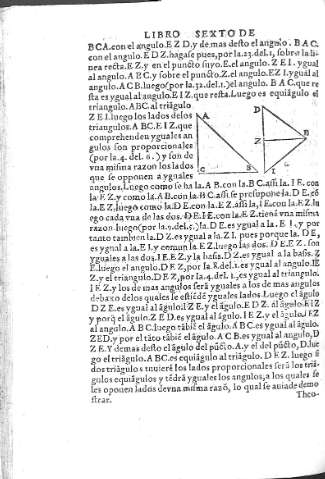 LIBRO SEXTO DE
BCA. con el angulo. E Z D, y de mas desto el angulo. B A C.
con el angulo. E D Z. hagase pues, por la .23. del.1, sobre la li
nea recta. E Z. y en el puncto suyo. E. el angulo. Z E I. ygual
al angulo. A B C. y sobre el puncto. Z. el angulo. E Z I. ygual al
angulo. A C B. luego (por la .32. del.1.) el angulo. B A C. que re
sta es ygual al angulo. E I Z. que resta. Luego es equiãgulo el
triangulo. ABC. al triãgulo
Z E I. luego los lados delos
triangulos. A B C. E I Z. que
comprehenden yguales an
gulos son proporcionales
(por la .4. del .6.) y son de
vna misma razon los lados
que se opponen a yguales
angulos, Luego como se ha la. A B. con la. B C. assi la. I E. con
la. E Z. y como la. A B. con la. B C. assi se presupone la. D E. cõ
la. E Z. luego como la. D E. con la. E Z. assi la. I E. con la. E Z. lu
ego cada vna de las dos. D E. I E. con la. E Z. tienẽ vna misma
razon luego (por la .9. del.5.) la. D E. es ygual a la. E I, y por
tanto tambien la. D Z. es ygual a la. Z I. pues porque la. D E,
es ygual a la. E I. y comun la. E Z. luego las dos. D E. E Z. son
yguales a las dos. I E. E Z. y la basis. D Z. es ygual a la basis. Z
I. luego el angulo. D E Z, por la .8. del.1. es ygual al angulo. I E
Z. y el triangulo. D E Z, por la .4. del.1. es ygual al triangulo.
I E Z. y los de mas angulos serã yguales a los de mas angulos
debaxo delos quales se estiẽdẽ yguales lados. Luego el ãgulo
D Z E. es ygual al ãgulo. I Z E. y el ãgulo. E D Z. al ãgulo. E I Z
y porq̃ el ãgulo. Z E D. es ygual al ãgulo. I E Z. y el ãgulo. I E Z
al angulo. A B C. luego tãbiẽ el ãgulo. A B C. es ygual al ãgulo.
ZED, y por el tãto tãbiẽ el ãgulo. A C B. es ygual al angulo, D
Z E. Y demas desto el ãgulo del pũcto. A. y el del pũcto, D. lue
go el triãgulo. A B C. es equiãgulo al triãgulo. D E Z. luego si
dos triãgulos tuuierẽ los lados proporcionales serã los triã-
gulos equiãgulos y tẽdrã yguales los angulos, a los quales se
les oponen lados de vna misma razõ, lo qual se auia de demo
strar.
Theo-
A
C
B
D
Z
E
I